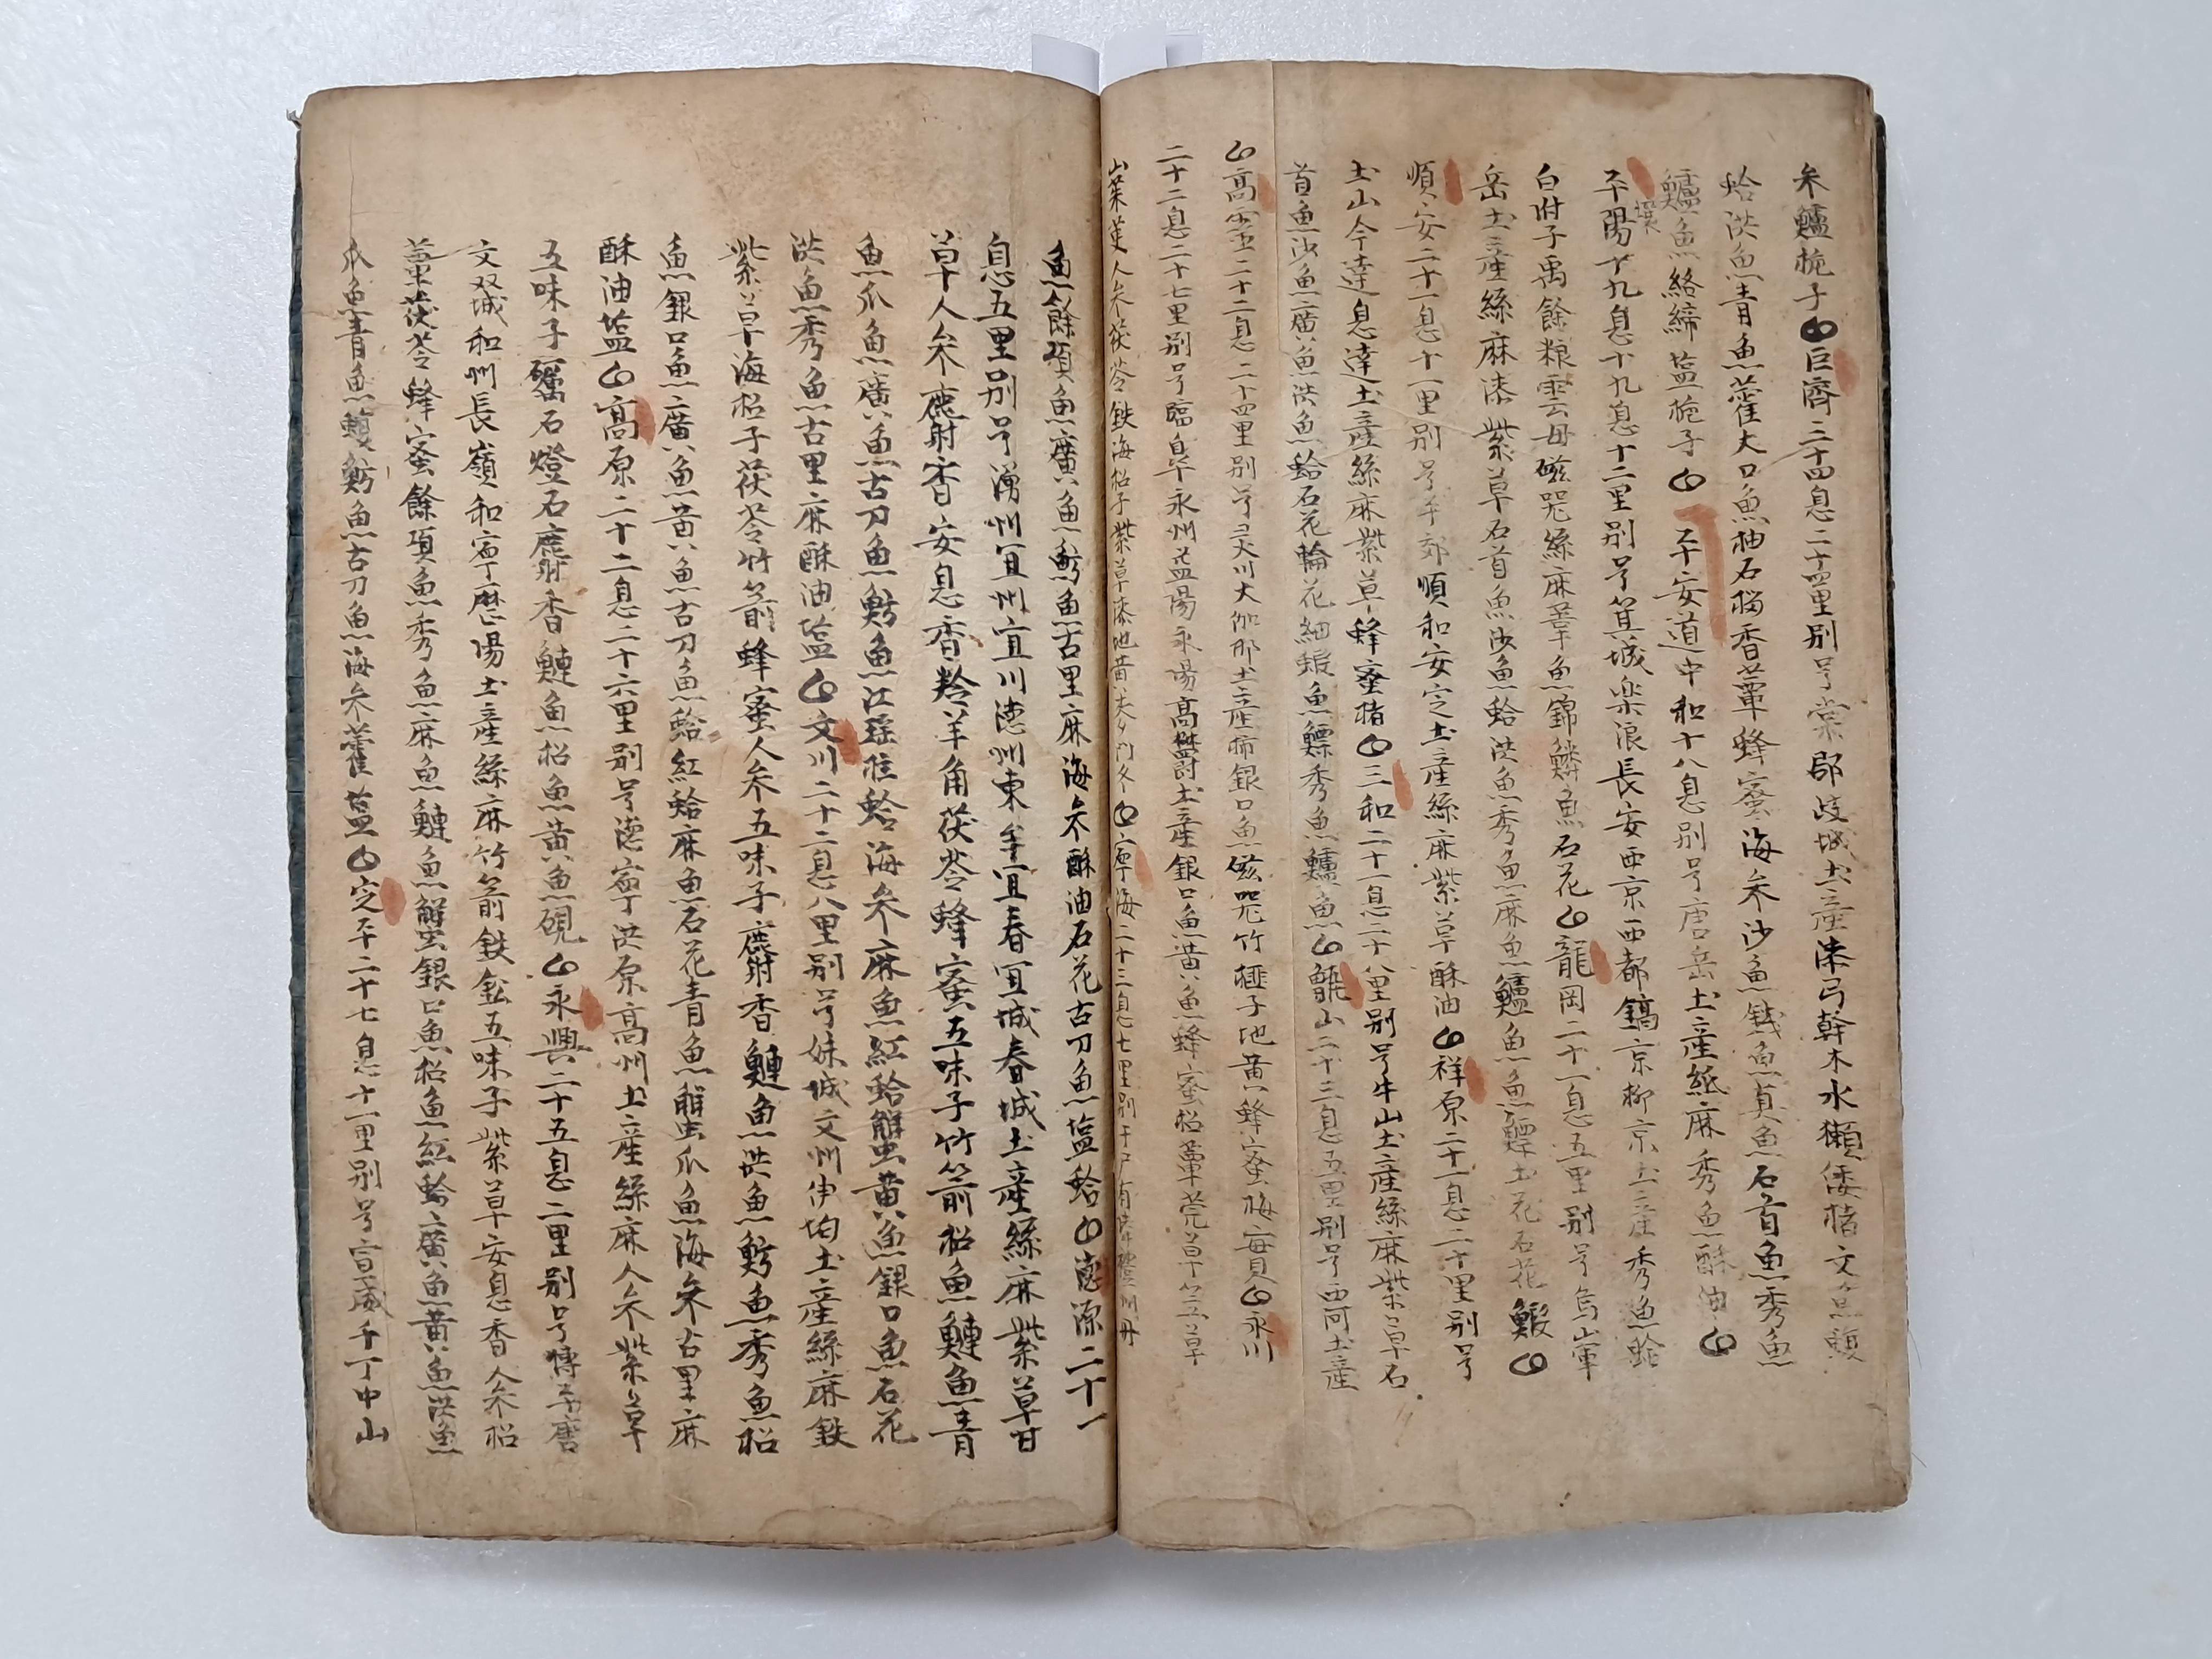 朱鱸梔子○巨濟二十四息二十四里別号裳郡岐城土産漆弓幹木水獺倭楮文魚鰒
蛤洪魚青魚藿大口魚柚石榴香蕈蜂蜜海参沙魚錢魚真魚石首魚秀魚
鱸魚絡締塩梔子○平安道中和十八息別号唐岳土産絲麻秀魚酥油○
平壤
平陽十九息十九息十二里別号箕城楽浪長安西京西都鎬京柳京土産秀魚蛤
白附子禹餘粮雲母磁器絲麻葦魚錦鱗魚石花○龍岡二十一息五里別号烏山軍
岳土産絲麻漆紫草石首魚沙魚蛤洪魚秀魚麻魚鱸魚魚鰾土花石花鰕○
順安二十一息十一里別号平郊順和安定土産絲麻紫草酥油○祥原二十一息二十里別号
土山今達息達土産絲麻紫草蜂蜜楮○三和二十一息二十八里別号牛山土産絲麻紫草石
首魚沙魚廣魚洪魚蛤石花輪花細鰕魚鰾秀魚鱸魚○甑山二十三息五里別号西河土産
○高霊二十二息二十四里別号霊川大伽那土産柿銀口魚磁器竹榧子地黄蜂蜜梅海貝○永川
二十二息二十七里別号臨皐永州益陽永陽高欝土産銀口魚黄魚蜂蜜松蕈莞草笠草
山茱萸人参茯苓鉄海松子紫草漆地黄麦門冬○寧海二十三息七里別于尸有隣礼州丹
魚餘項魚廣魚魴魚古里麻海参酥油石花古刀魚塩蛤○德源二十一
息五里別号湧州宜州宜川德州東牟宜春宜城春城土産絲麻紫草甘
草人参麝香安息香羚羊角茯苓蜂蜜五味子竹箭松魚鰱魚青
魚瓜魚廣魚古刀魚魴魚江瑤柱蛤海参麻魚紅蛤蟹黄魚銀口魚石花
洪魚秀魚古里麻酥油塩○文川二十二息八里別号妹城文州伊均土産絲麻鉄
紫草海松子茯苓竹箭蜂蜜人参五味子麝香鰱魚洪魚魴魚秀魚松
魚銀口魚廣魚黄魚古刀魚蛤紅蛤麻魚石花青魚蟹瓜魚海参古里麻
酥油塩○高原二十二息二十六里別号德寧洪原高州土産絲麻人参紫草
五味子礪石燈石麝香鰱魚松魚黄魚硯○永興二十五息二里別号博平唐
文双城和州長嶺和寧歴陽土産絲麻竹箭鉄鈆五味子紫草安息香人参松
蕈茯苓蜂蜜餘項魚秀魚麻魚鰱魚蟹銀口魚松魚紅蛤廣魚黄魚洪魚
瓜魚青魚鰒魴魚古刀魚海参藿塩○定平二十七息十一里別号宣威千丁中山